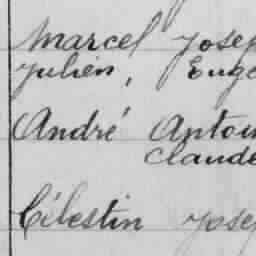 Marcel Josep
Julien, Euge
André Antoin
Claude
Célestin Josep